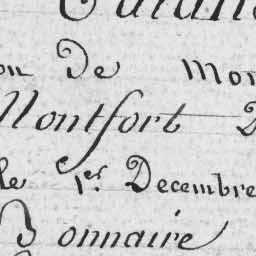 on De Mon
Montfort D
le 1er Decembre
Bonnaire